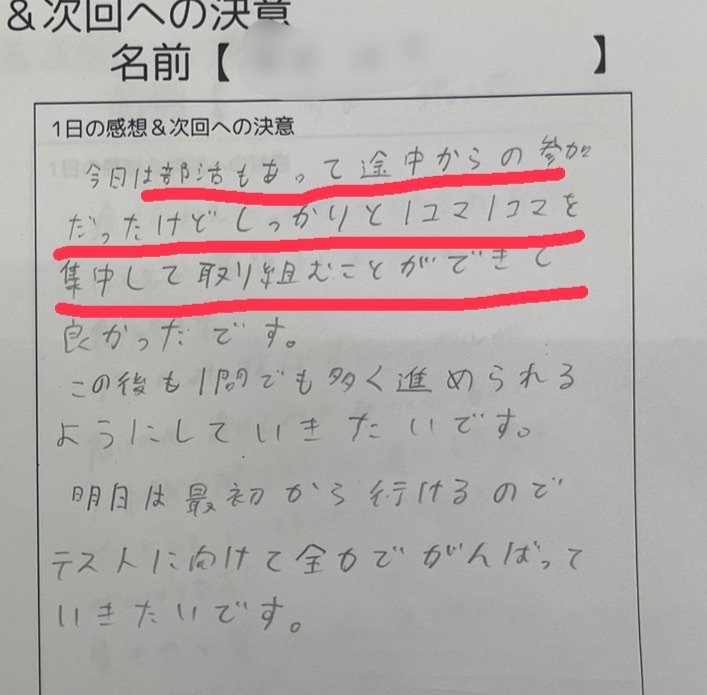 &次回への決意
名前【 】
1日の感想&次回への決意
今日は部活もあって途中からの参加
だったけどしっかりと1コマ1コマを
集中して取り組むことができて
良かったです。
この後も1問でも多く進められる
ようにしていきたいです。
明日は最初から行けるので
テストに向けて全力でがんばって
いきたいです。